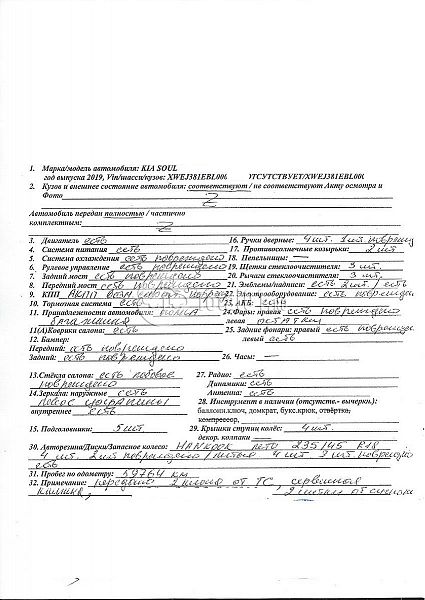 1. Марка/модель автомобиля: KIA SOUL
год выпуска 2019, Vin/шасси/кузов: XWEJ381EBL00( УТСУТСТВУЕТ/XWEJ381EBL00(
2. Кузов и внешнее состояние автомобиля: соответствуют / не соответствуют Акту осмотра и
Фото
Автомобиль передан полностью / частично
комплектным: Z
3. Двигатель есть
16. Ручки дверные: 4 шт. 1 шт.
4. Система питания есть
17. Противосолнечные козырьки: 2 шт
5. Система охлаждения есть повреждено
18. Пепельницы: —
6. Рулевое управление есть повреждено
19. Щетки стеклоочистителя: 3 шт.
7. Задний мост есть повреждено
20. Рычаги стеклоочистителя: 3 шт.
8. Передний мост есть повреждено
21. Эмблемы/надписи: есть 2 шт. / есть
9. КПП АКПП
22. Электрооборудование: есть
10. Тормозная система есть
23. АКБ:
11. Принадлежности автомобиля: полка
багажника
24. Фары: правая есть повреждено
левая
11(А) Коврики салона: есть
25. Задние фонари: правый есть
левый есть
12. Бампер:
Передний: есть повреждено
Задний: есть повреждено
26. Часы: —
13. Стёкла салона: есть лобовое
повреждено
27. Радио: есть
Динамики: есть
Антенна: есть
14. Зеркала: наружные есть
левое
внутреннее есть
28. Инструмент в наличии (отсутств.- вычерк.):
баллонн.ключ, домкрат, букс.крюк, отвёртка,
компрессор,
15. Подголовники: 5 шт.
29. Крышки ступиц колёс: 4 шт.
декор. колпаки —
30. Авторезина/Диски/Запасное колесо: лето 235/45 R18
4 шт. 2 шт повреждено / литые 4 шт 2 шт повреждено
есть
31. Пробег по одометру: 59764 км
32. Примечание: передано 2 ключа от ТС, сервисная
книжка,